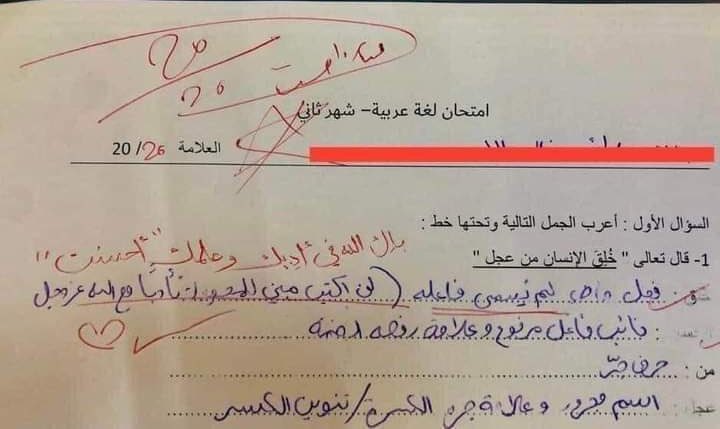 ممتاز أحسنت
20
20
امتحان لغة عربية – شهر ثاني
العلامة 20/20
السؤال الأول : أعرب الجمل التالية وتحتها خط :
بارك الله في أدبك وعلمك "أحسنت"
1- قال تعالى " خُلِقَ الإنسان من عجل "
فعل ماض لم يسمى فاعله (لن اكتب مبني للمجهول تأدبا مع الله عز وجل
نائب فاعل مرفوع وعلامة رفعه الضمة
من : حرف جرّ
عجل : اسم مجرور وعلامة جره الكسرة / تنوين الكسر